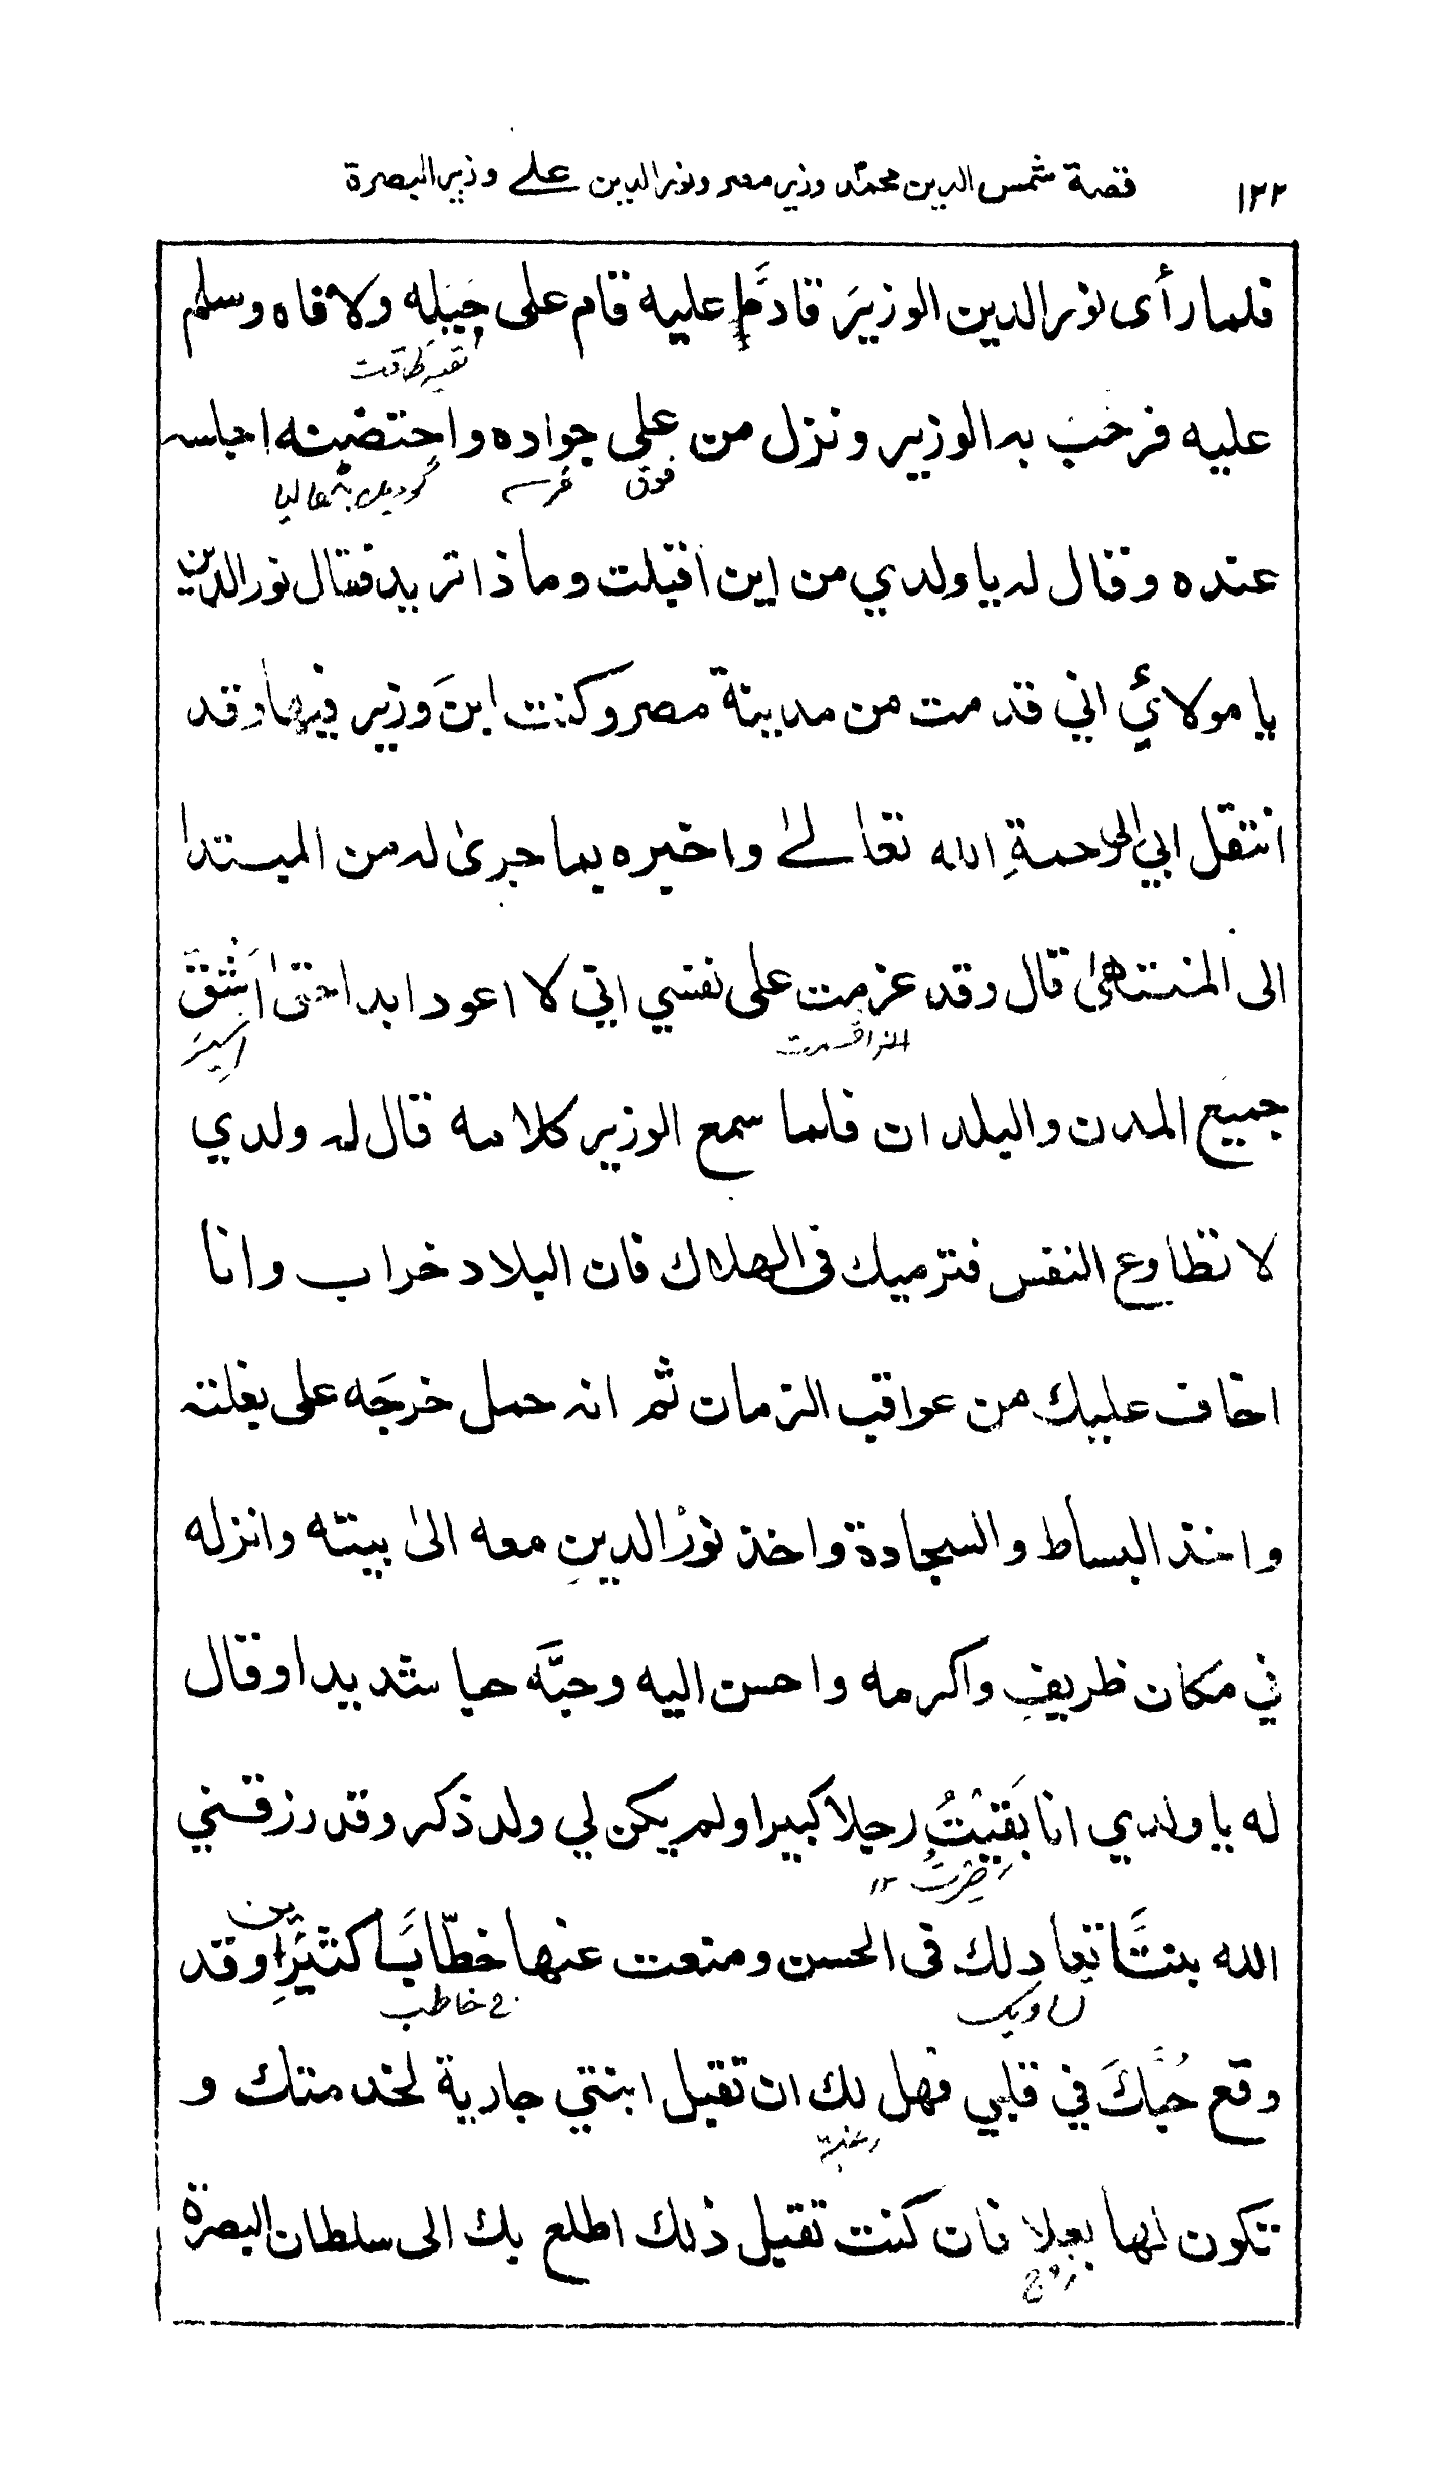 ١٢٢ قصة شمس الدين محمد وزير مصر ونور الدين علے وزير البصرة
فلما رأى نور الدين الوزيرَ قادمًا عليه قام على حَيَله ولاقاه وسلم
عليه فرحَب به الوزير ونزل من على جواده واحتضنه اجلسه
فوق
عنده وقال له يا ولدي من اين اقبلت وما ذا تريد فقال نور الدين
يا مولائي اني قدمت من مدينة مصر وكنت ابنَ وزير فيها وقد
انتقل ابي الى رحمةِ الله تعالےٰ واخبره بما جرىٰ له من المبتدا
الى المنتهىٰ قال وقد عزمت على نفسي اني لا اعود ابدا حتىٰ اشقَّ
جميع المدن والبلدان فلما سمع الوزير كلامه قال له ولدي
لا تطاوع النفس فترميك فى الهلاك فان البلاد خراب وانا
اخاف عليك من عواقب الزمان ثم انه حمل خرجَه على بغلته
واخذ البساط والسجادة واخذ نورُ الدينِ معه الىٰ بيته وانزله
في مكان ظريفِ واكرمه واحسن اليه وحبَّه حبا شديدا وقال
له يا ولدي انا بَقِيْتُ رجلا كبيرا ولم يكن لي ولد ذكر وقد رزقني
صرت ١٢
الله بنتًا تعادلك فى الحسن ومنعت عنها خطّابًا كثيرين وقد
وقع حُبُّكَ في قلبي فهل لك ان تقبل ابنتي جارية لخدمتك و
رغبة
تكون لها بعلا فان كنت تقبل ذلك اطلع بك الى سلطان البصرة
زوج